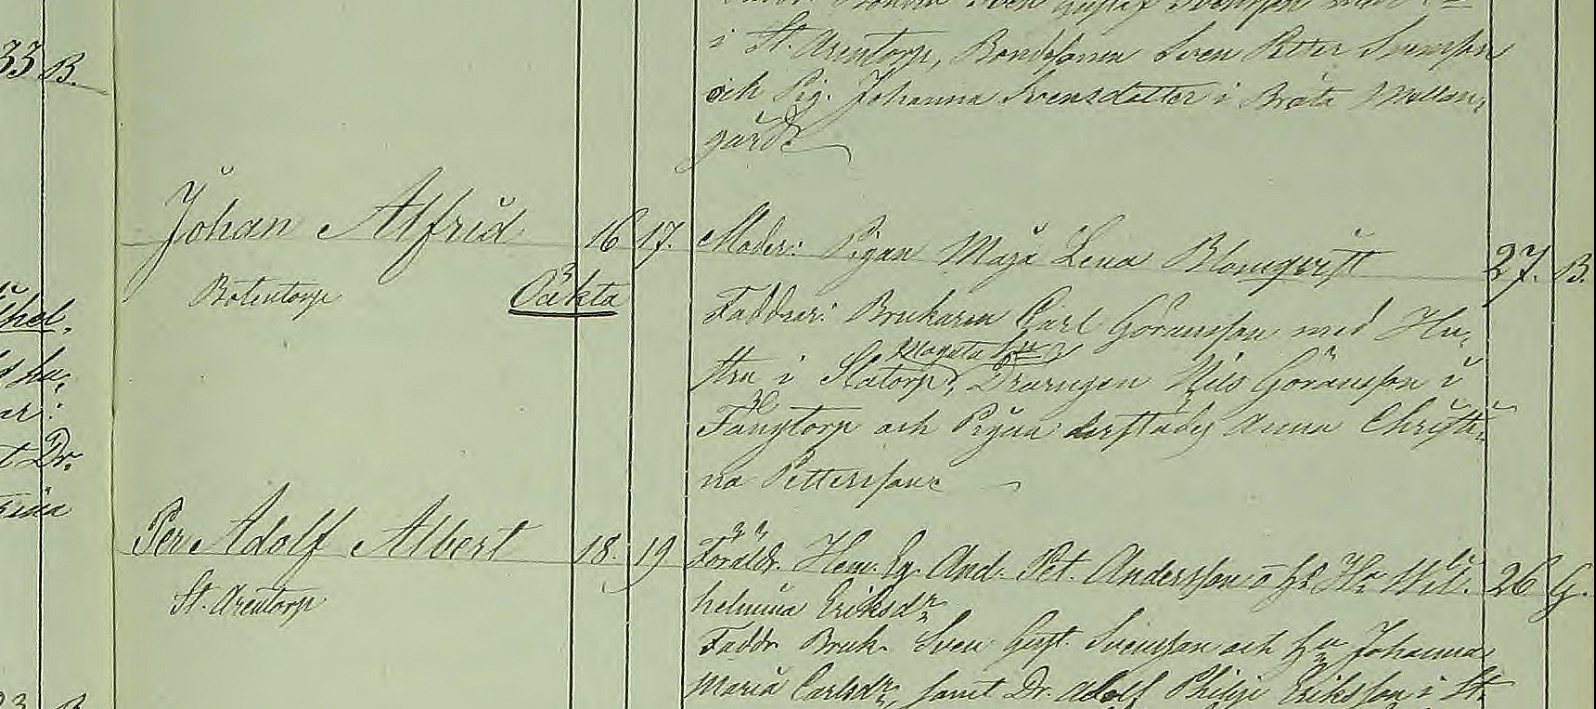 Sven Gustaf Svensson med
33 B. i St. Arentorp, Bondesonen Sven Petter Svensson
och Pig. Johanna Svensdotter i Bråta Mellan,
gård
Johan Alfrid 16 17. Moder: Pigan Maja Lena Blomqvist 27. B.
Botentorp Oäkta Faddrar: Brukaren Carl Göransson med Hu,
stru i Slatorp, Drängen Nils Göransson i
Fångtorp och Pigan derstädes Anna Christi,
na Pettersson
Per Adolf Albert 18. 19 Föräldr. Hem. Eg. And. Pet. Andersson o hs Hu Wil. 26 G.
St. Arentorp helmina Eriksdr
Faddr. Bruk. Sven Gust. Svensson och hu Johanna
Maria Carlsdr, samt Dr. Adolf Philip Eriksson i St.